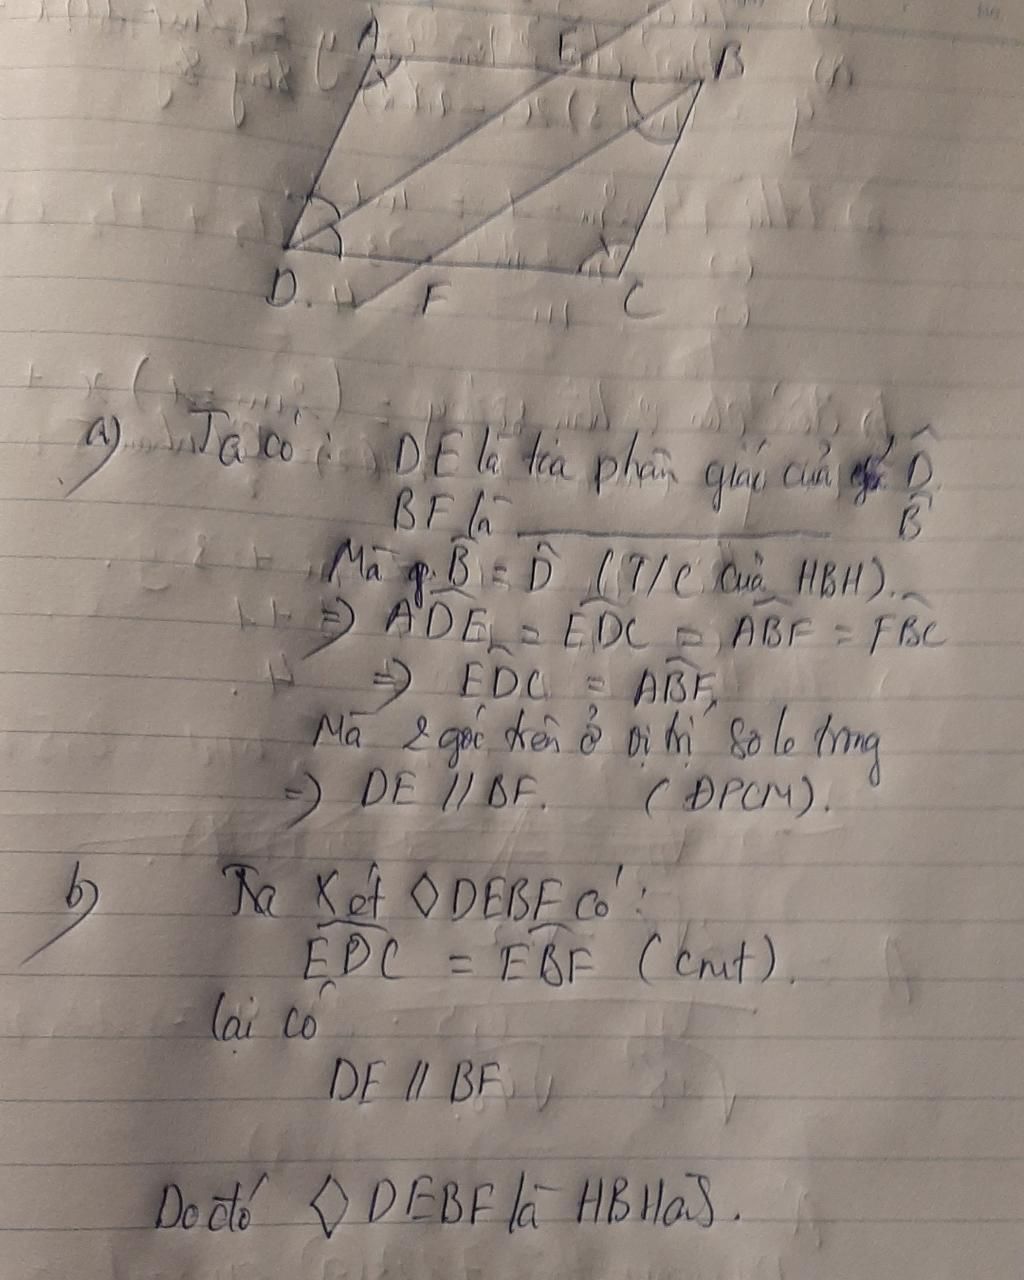 A E B
D F C
a) Ta có : DE là tia phân giác của D̂
BF là ________ B̂
Mà B̂ = D̂ (T/C của HBH).
=> ADÊ = EDĈ = ABF̂ = FBĈ
=> EDĈ = ABF̂
Mà 2 góc trên ở vị trí so le trong
=> DE // BF. (ĐPCM).
b) Xét ◇DEBF có :
EDĈ = EBF̂ (cmt).
lại có
DE // BF
Do đó ◇ DEBF là HBH